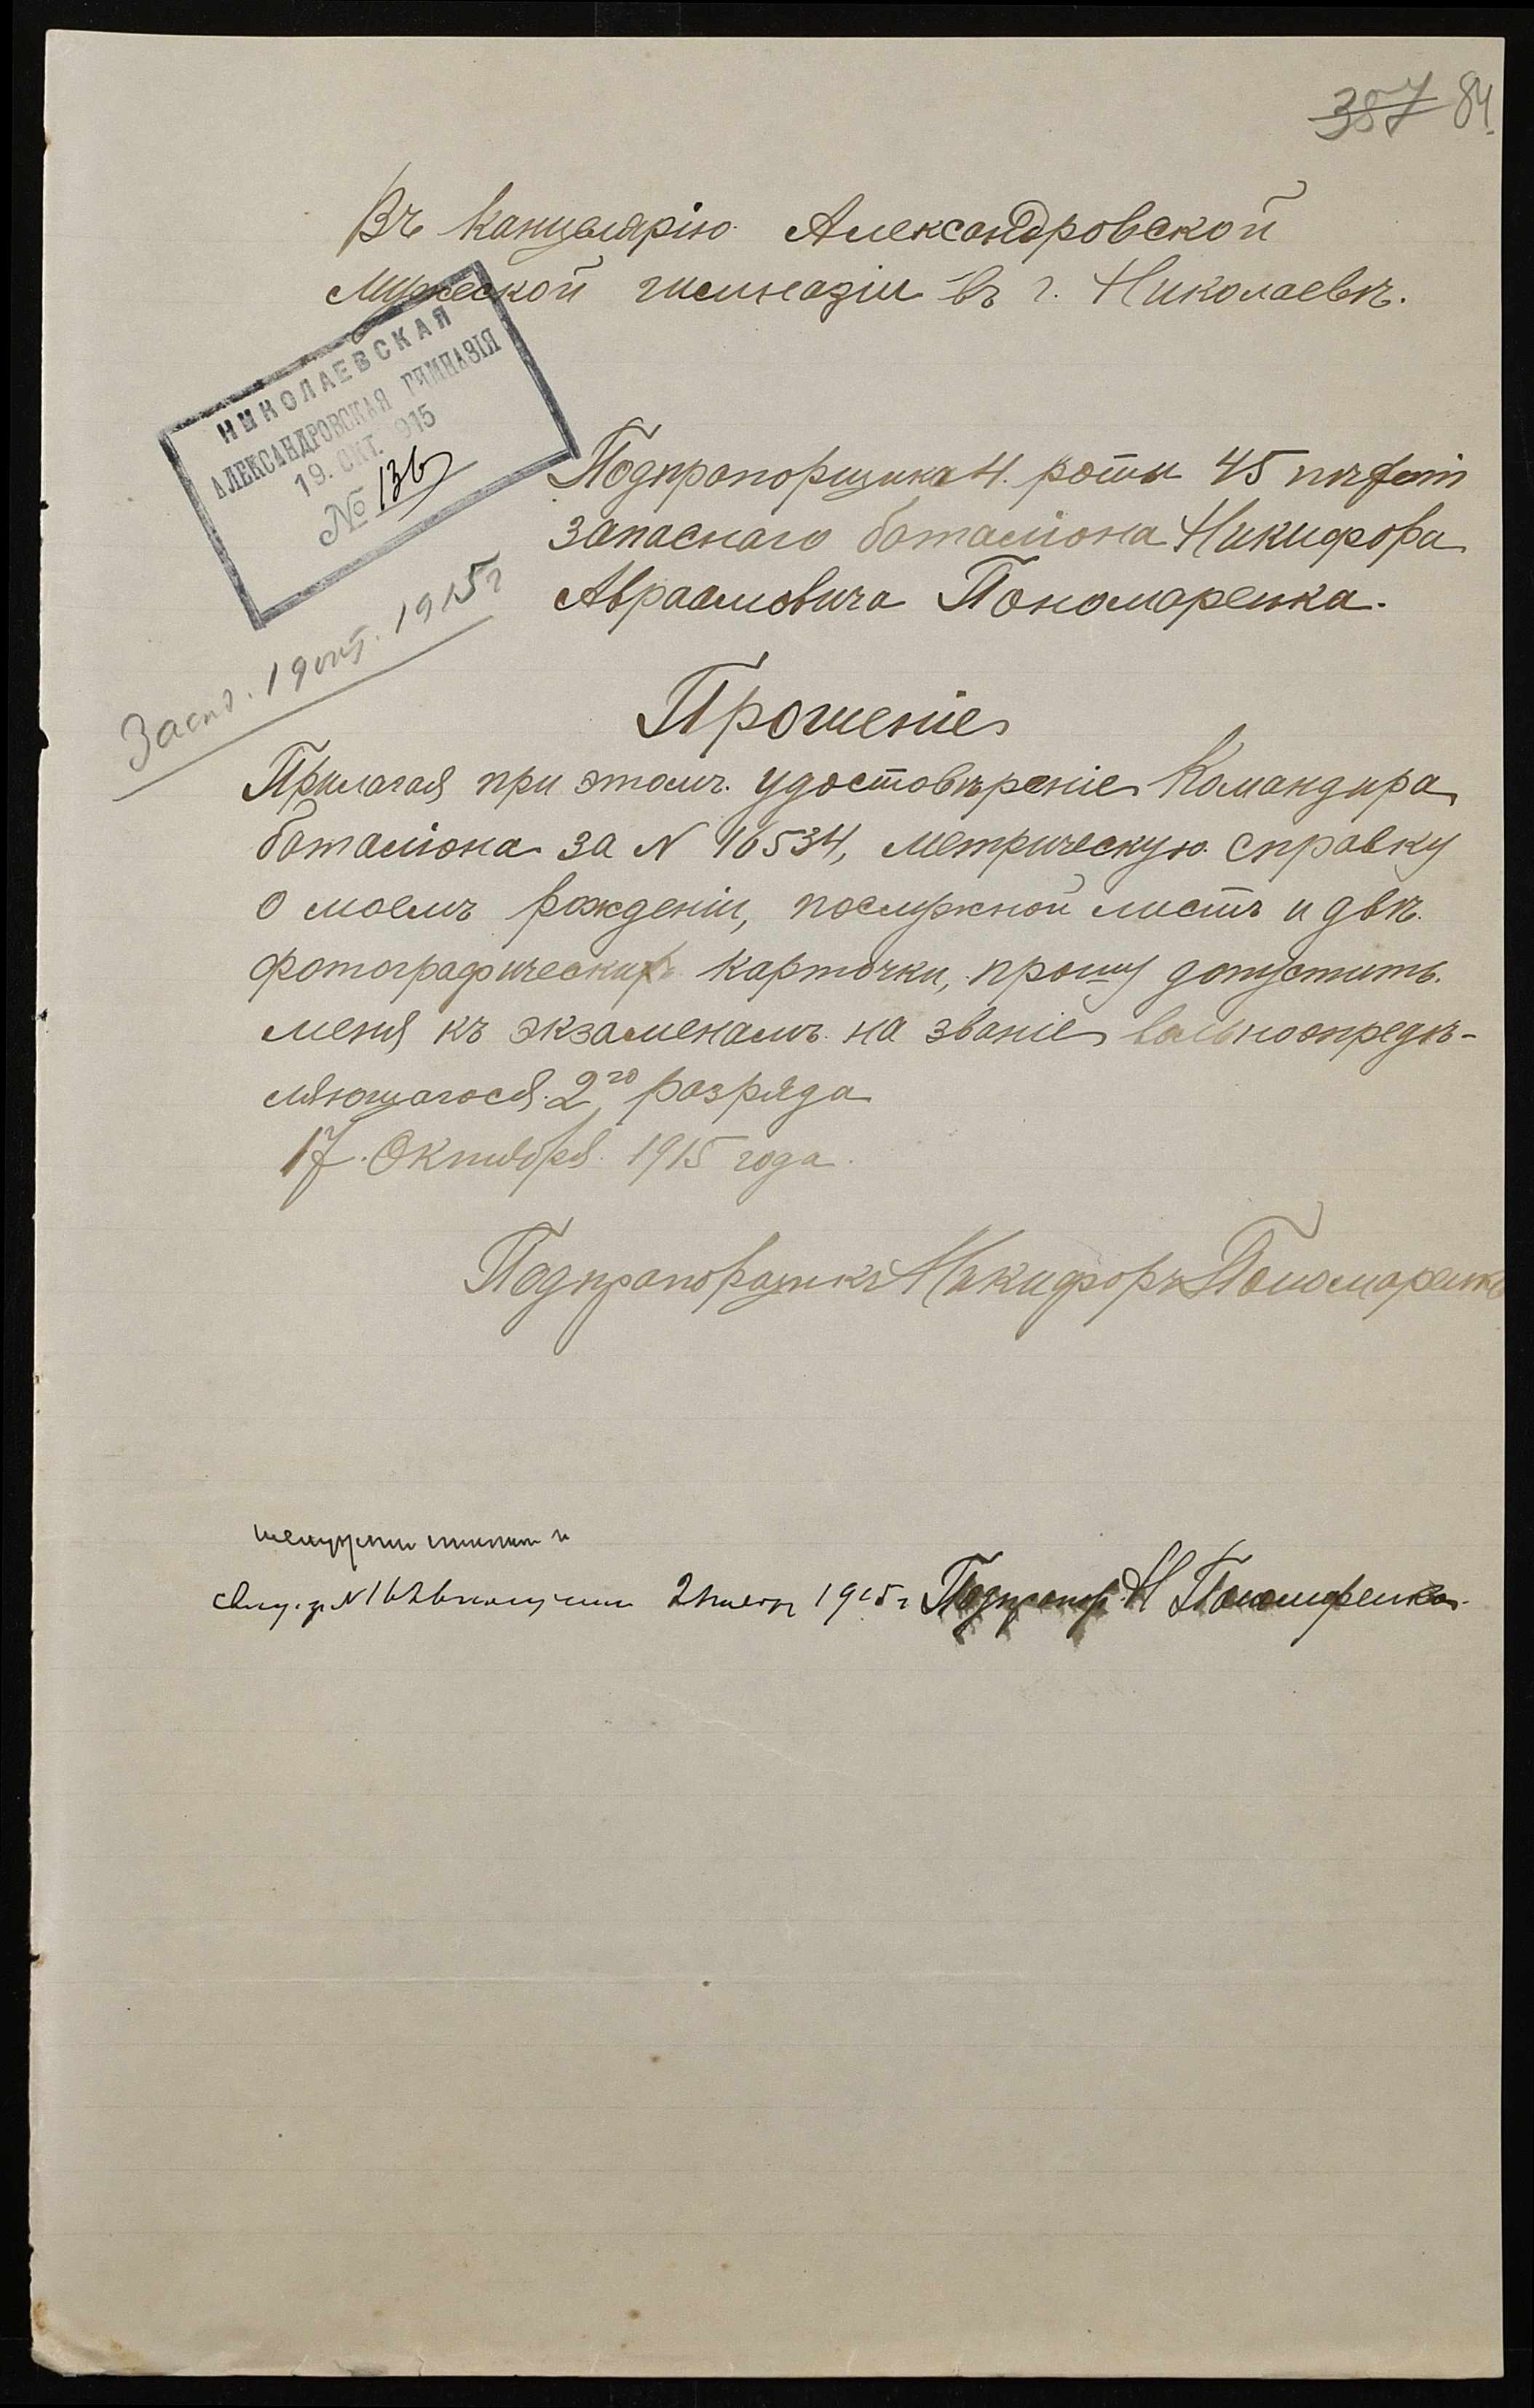 387 84.
Въ Канцелярію Александровской
мужеской гимназіи въ г. Николаевѣ.
НИКОЛАЕВСКАЯ
АЛЕКСАНДРОВСКАЯ ГИМНАЗІЯ
19. ОКТ. 915
№ 136
Подпрапорщика 4. роты 45 пѣхот
запаснаго баталіона Никифора
Авраамовича Пономаренка.
19 окт. 1915 г
Прошеніе
Прилагая при этомъ удостовѣреніе Командира
баталіона за N 16534, метрическую справку
о моемъ рожденіи, послужной листъ и двѣ
фотографическихъ карточки, прошу допустить
меня къ экзаменамъ на званіе вольноопредѣ-
ляющагося 2го разряда
17 Октября 1915 года.
Подпрапорщикъ Никифоръ Пономаренко
получилъ 2 ноября 1915 г Подпрапор. Н Пономаренко.